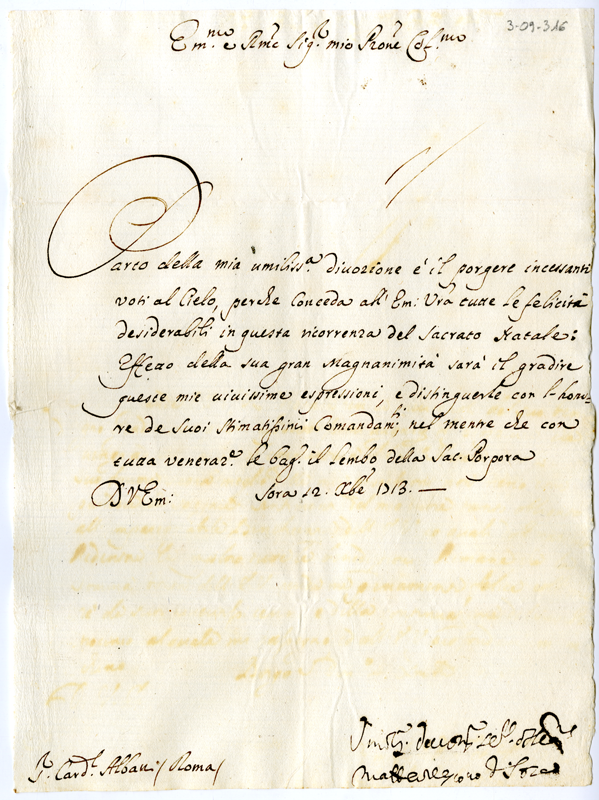 3-09-316
Em.mo e Rmo Sig.r mio Prone Col.mo
Parto della mia umiliss.a divozione è il porgere incessanti
voti al Cielo, perche conceda all' Em: Vra tutte le felicità
desiderabili in questa ricorrenza del Sacrato Natale:
Effetto della sua gran Magnanimità sarà il gradire
queste mie vivissime espressioni, e distinguerle con l'hono-
re de suoi Stimatissimi Comandam.ti, nel mentre che con
tutta veneraz.e le bag.o il lembo della Sac. Porpora
D V Em: Sora 12. Xbre 1713. —
Sr. Card.l Albani / Roma /
di Sora